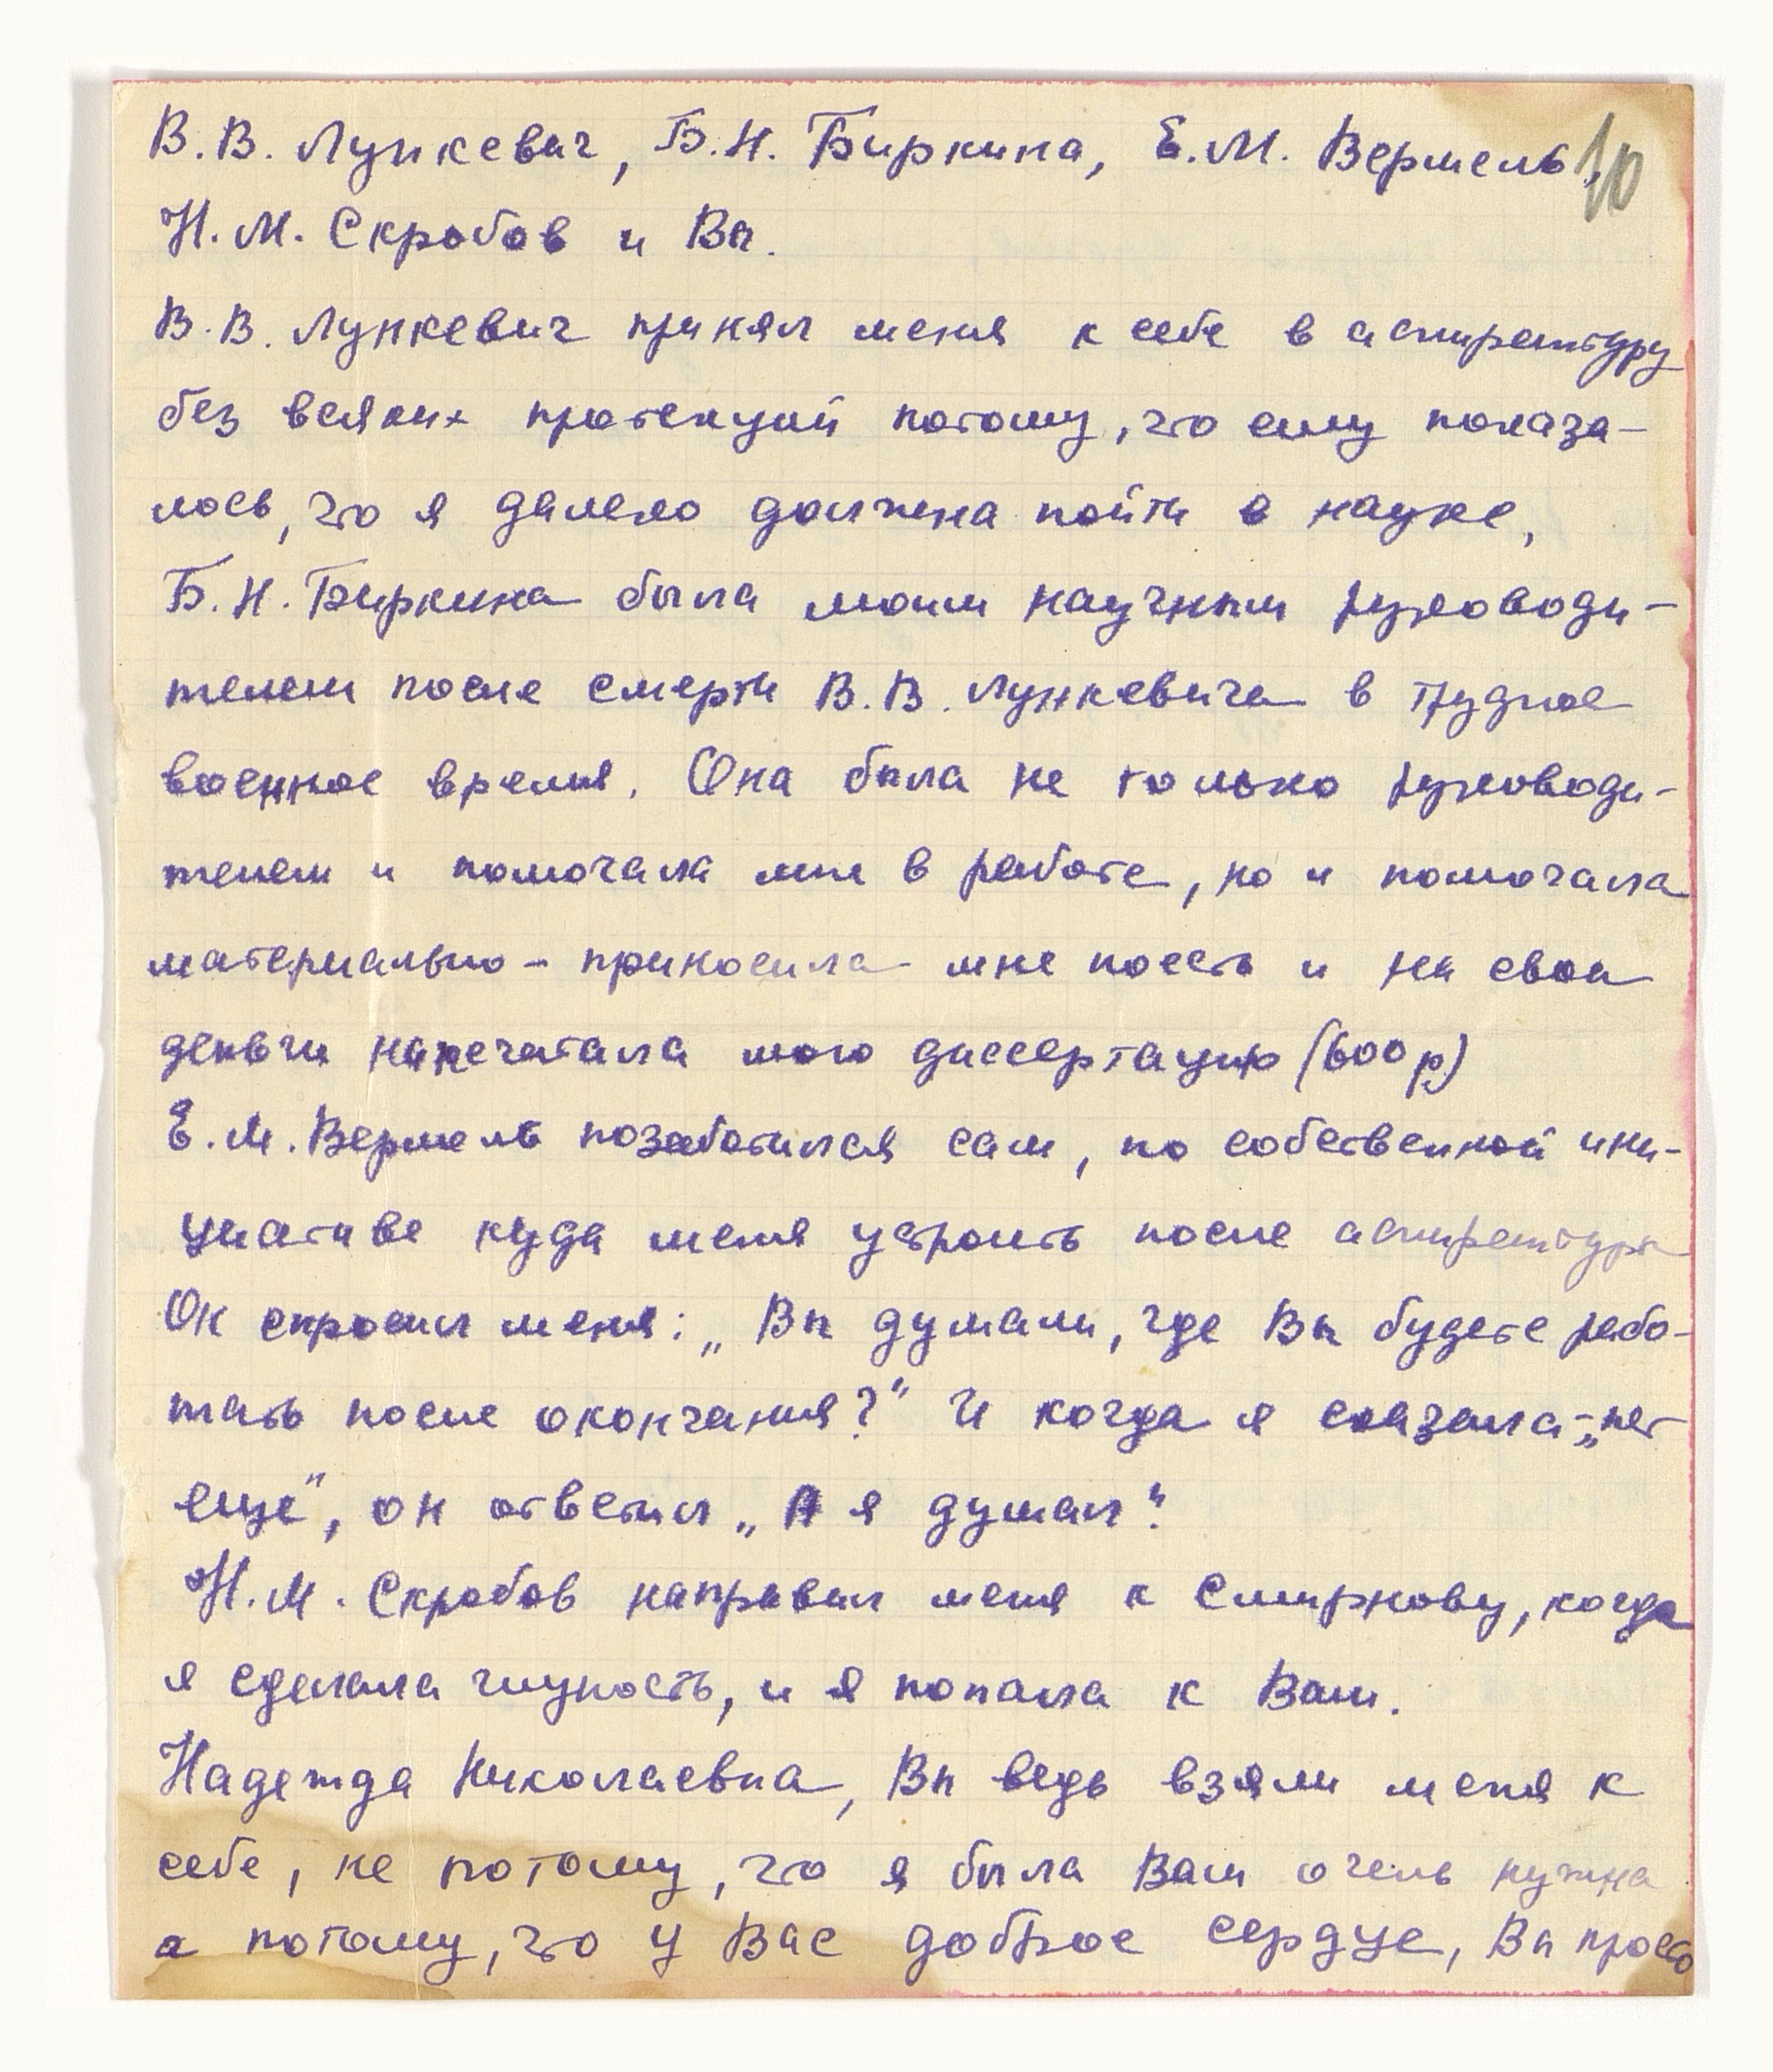 В.В. Лункевич, Б.Н. Биркина, Е.М. Вермель, 10
Н.М. Скробов и Вы.
В.В. Лункевич принял меня к себе в аспирантуру
без всяких протекций потому, что ему показа-
лось, что я далеко должна пойти в науке,
Б.Н. Биркина была моим научным руководи-
телем после смерти В.В. Лункевича в трудное
военное время. Она была не только руководи-
телем и помогала мне в работе, но и помогала
материально - приносила мне поесть и на свои
деньги напечатала мою диссертацию (600 р.)
Е.М. Вермель позаботился сам, по собственной ини-
циативе куда меня устроить после аспирантуры
Он спросил меня: „Вы думали, где Вы будете рабо-
тать после окончания?" И когда я сказала - „нет
еще", он ответил „А я думал".
Н.М. Скробов направил меня к Смирнову, когда
я сделала глупость, и я попала к Вам.
Надежда Николаевна, Вы ведь взяли меня к
себе, не потому, что я была Вам очень нужна
а потому, что у Вас доброе сердце, Вы просто